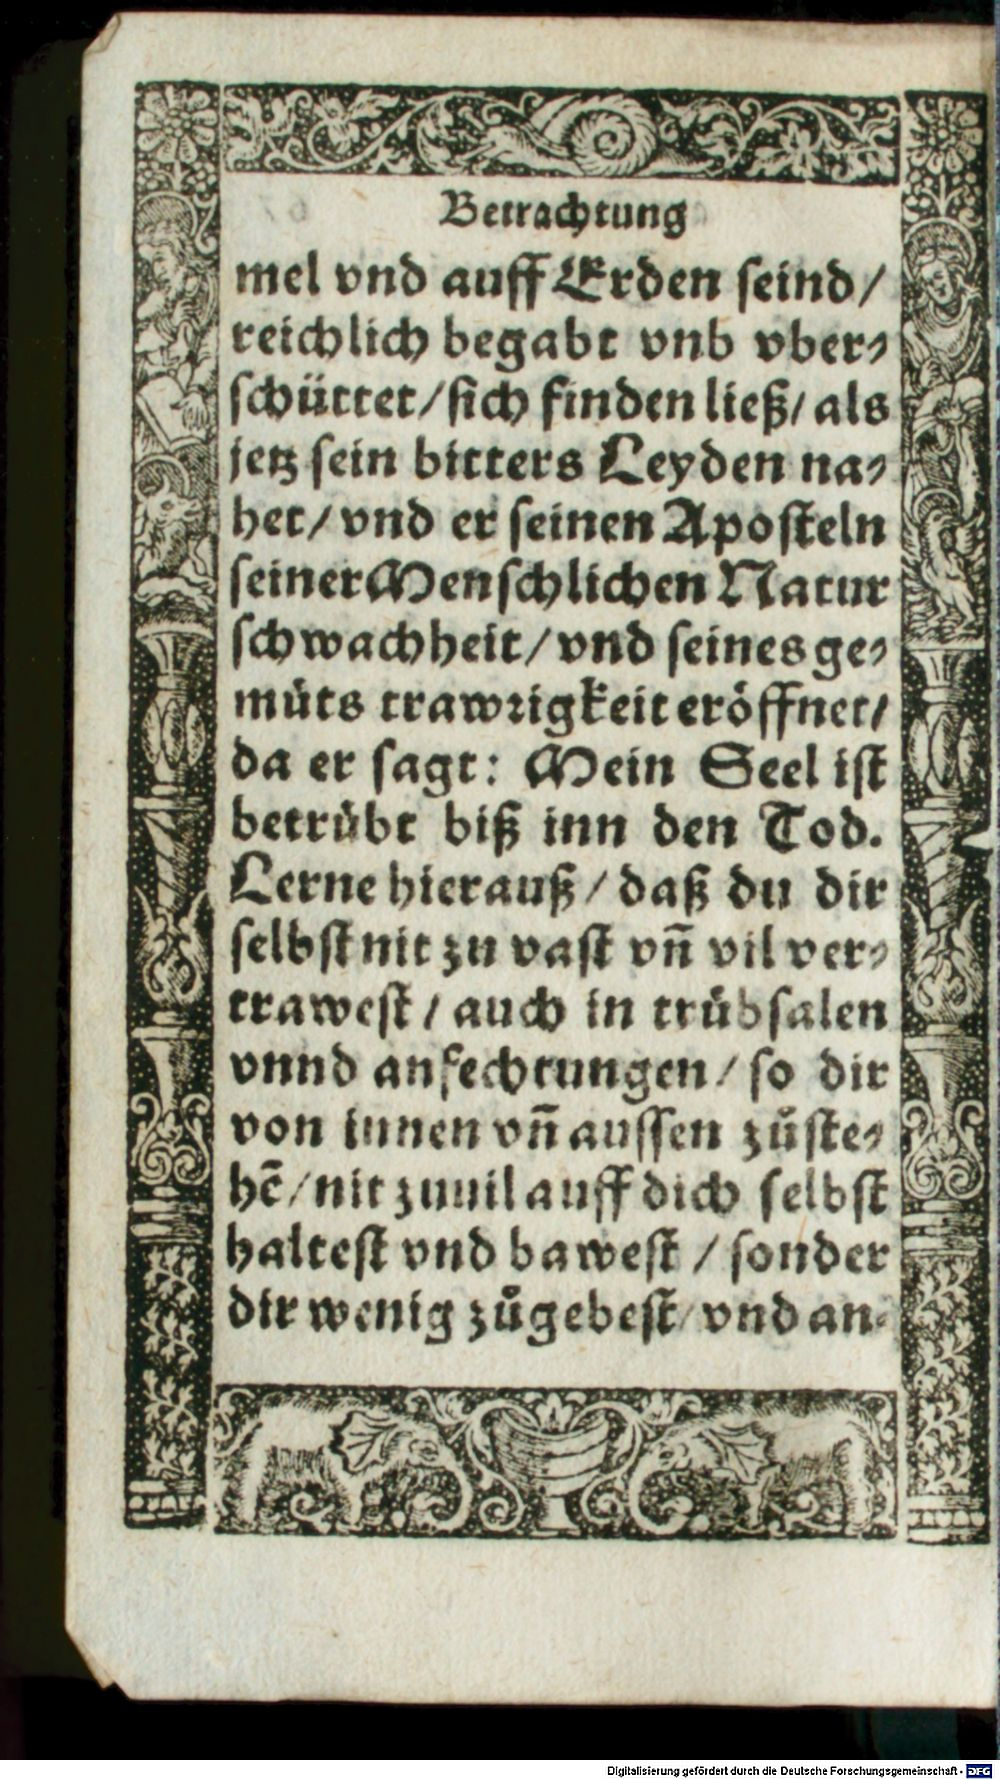 Betrachtung
mel vnd auff Erden seind/
reichlich begabt vnb vber⸗
schüttet/sich finden ließ/als
jetz sein bitters Leyden na⸗
het/vnd er seinen Aposteln
seiner Menschlichen Natur
schwachheit/vnd seines ge⸗
muͤts trawrigkeit eröffnet/
da er sagt: Mein Seel ist
betruͤbt biß inn den Tod.
Lerne hierauß/daß du dir
selbst nit zu vast vñ vil ver⸗
trawest/auch in truͤbsalen
vnnd anfechtungen/so dir
von innen vñ aussen zuͦste⸗
hē/nit zuuil auff dich selbst
haltest vnd bawest/sonder
dir wenig zuͦgebest/vnd an⸗
Digitalisierung gefördert durch die Deutsche Forschungsgemeinschaft - DFG